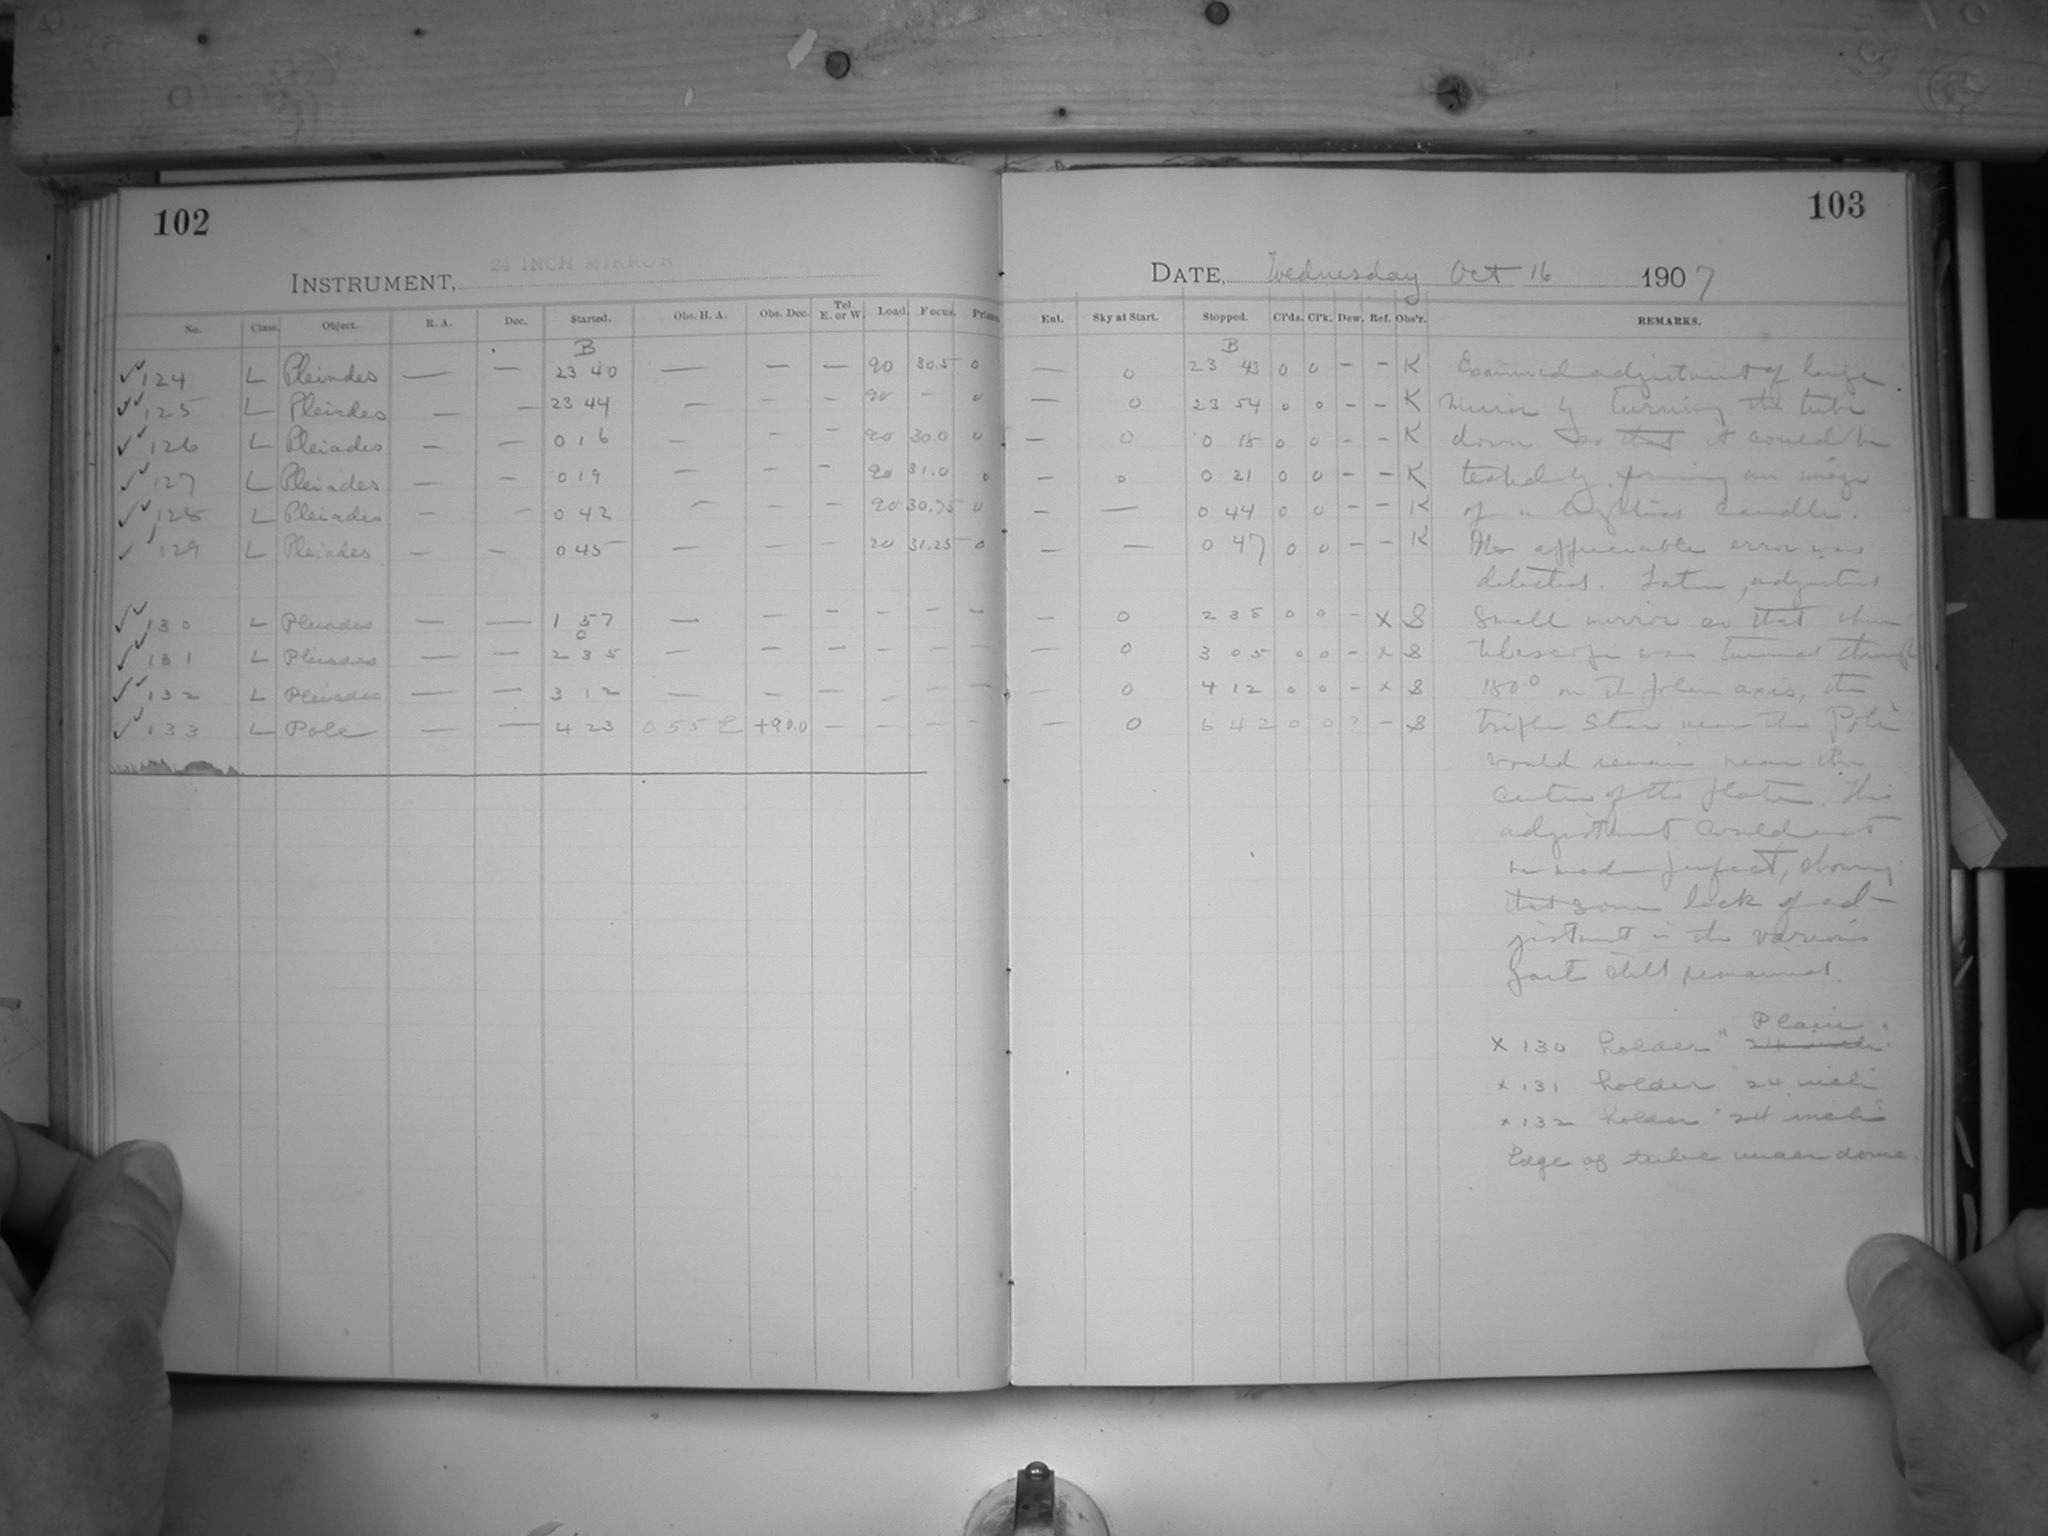 102
INSTRUMENT, 24 INCH MIRROR
No. Class. Object. R. A. Dec. Started. Obs. H. A. Obs. Dec. Tel. E. or W. Load. Focus. Prism.
B
124 L Pleiades — — 23 40 — — — 90 30.5 0
125 L Pleiades — — 23 44 — — — 90 — 0
126 L Pleiades — — 0 16 — — — 90 30.0 0
127 L Pleiades — — 0 19 — — — 90 31.0 0
128 L Pleiades — — 0 42 — — — 90 30.75 0
129 L Pleiades — — 0 45 — — — 90 31.25 0
130 L Pleiades — — 1 57 — — — — — —
C
131 L Pleiades — — 2 35 — — — — — —
132 L Pleiades — — 3 12 — — — — — —
133 L Pole — — 4 23 0 55 E +90.0 — — — —
103
DATE, Wednesday Oct 16 1907
Ent. Sky at Start. Stopped. Cl'ds. Cl'k. Dew. Ref. Obs'r. REMARKS.
B
— 0 23 43 0 0 — — K Examined adjustment of large
— 0 23 54 0 0 — — K mirror by turning the tube
— 0 0 18 0 0 — — K down so that it could be
— 0 0 21 0 0 — — K tested by forming an image
— — 0 44 0 0 — — K of a candle.
— — 0 47 0 0 — — K No appreciable error was
detected. Later, adjusted
— 0 2 35 0 0 — X S small mirror so that when
— 0 3 05 0 0 — x S telescope was turned through
— 0 4 12 0 0 — x S 180° on the polar axis, the
— 0 6 42 0 0 ? — S triple star near the Pole
would remain near the
center of the plate. This
adjustment could not
be made perfect, showing
that some lack of ad-
justment in the various
parts still remained.
Plain
X 130 holder "24 inch"
x 131 holder "24 inch"
x 132 holder "24 inch"
Edge of tube under dome.